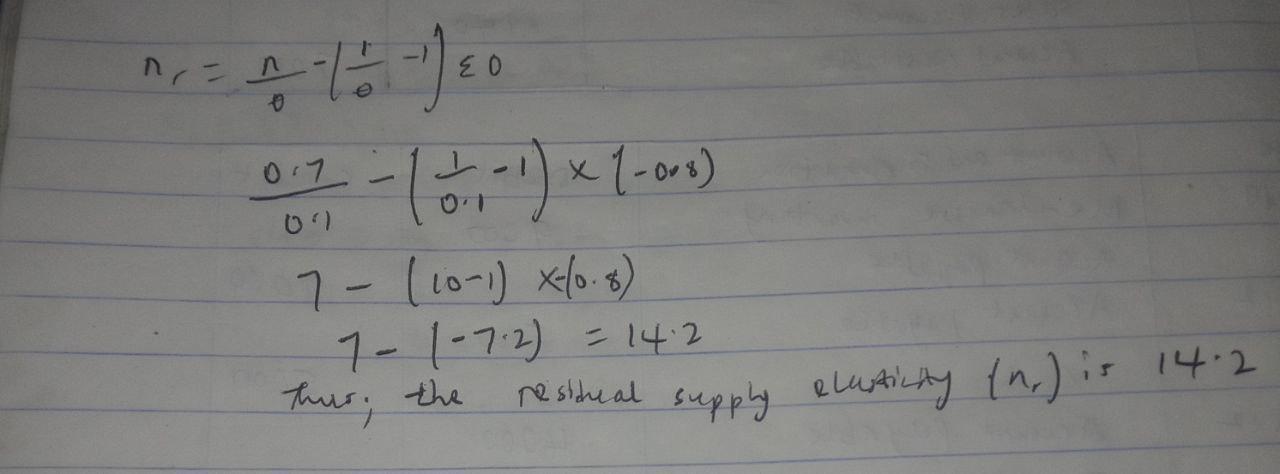 n_r = n/θ - (1/θ - 1) ε0
0.7/0.1 - (1/0.1 - 1) x (-0.8)
7 - (10-1) x-(0.8)
7 - (-7.2) = 14.2
Thus; the residual supply elasticity (n_r) is 14.2